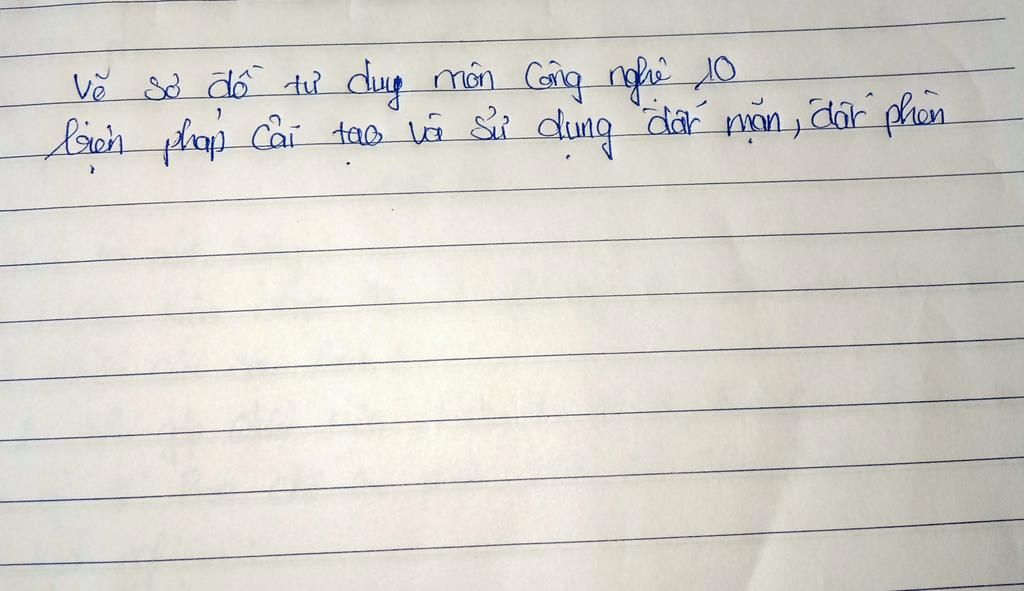 Vẽ sơ đồ tư duy môn Công nghệ 10
biện pháp cải tạo và sử dụng đất mặn, đất phèn